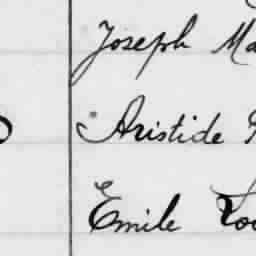 Joseph Ma
Aristide
Emile Lou